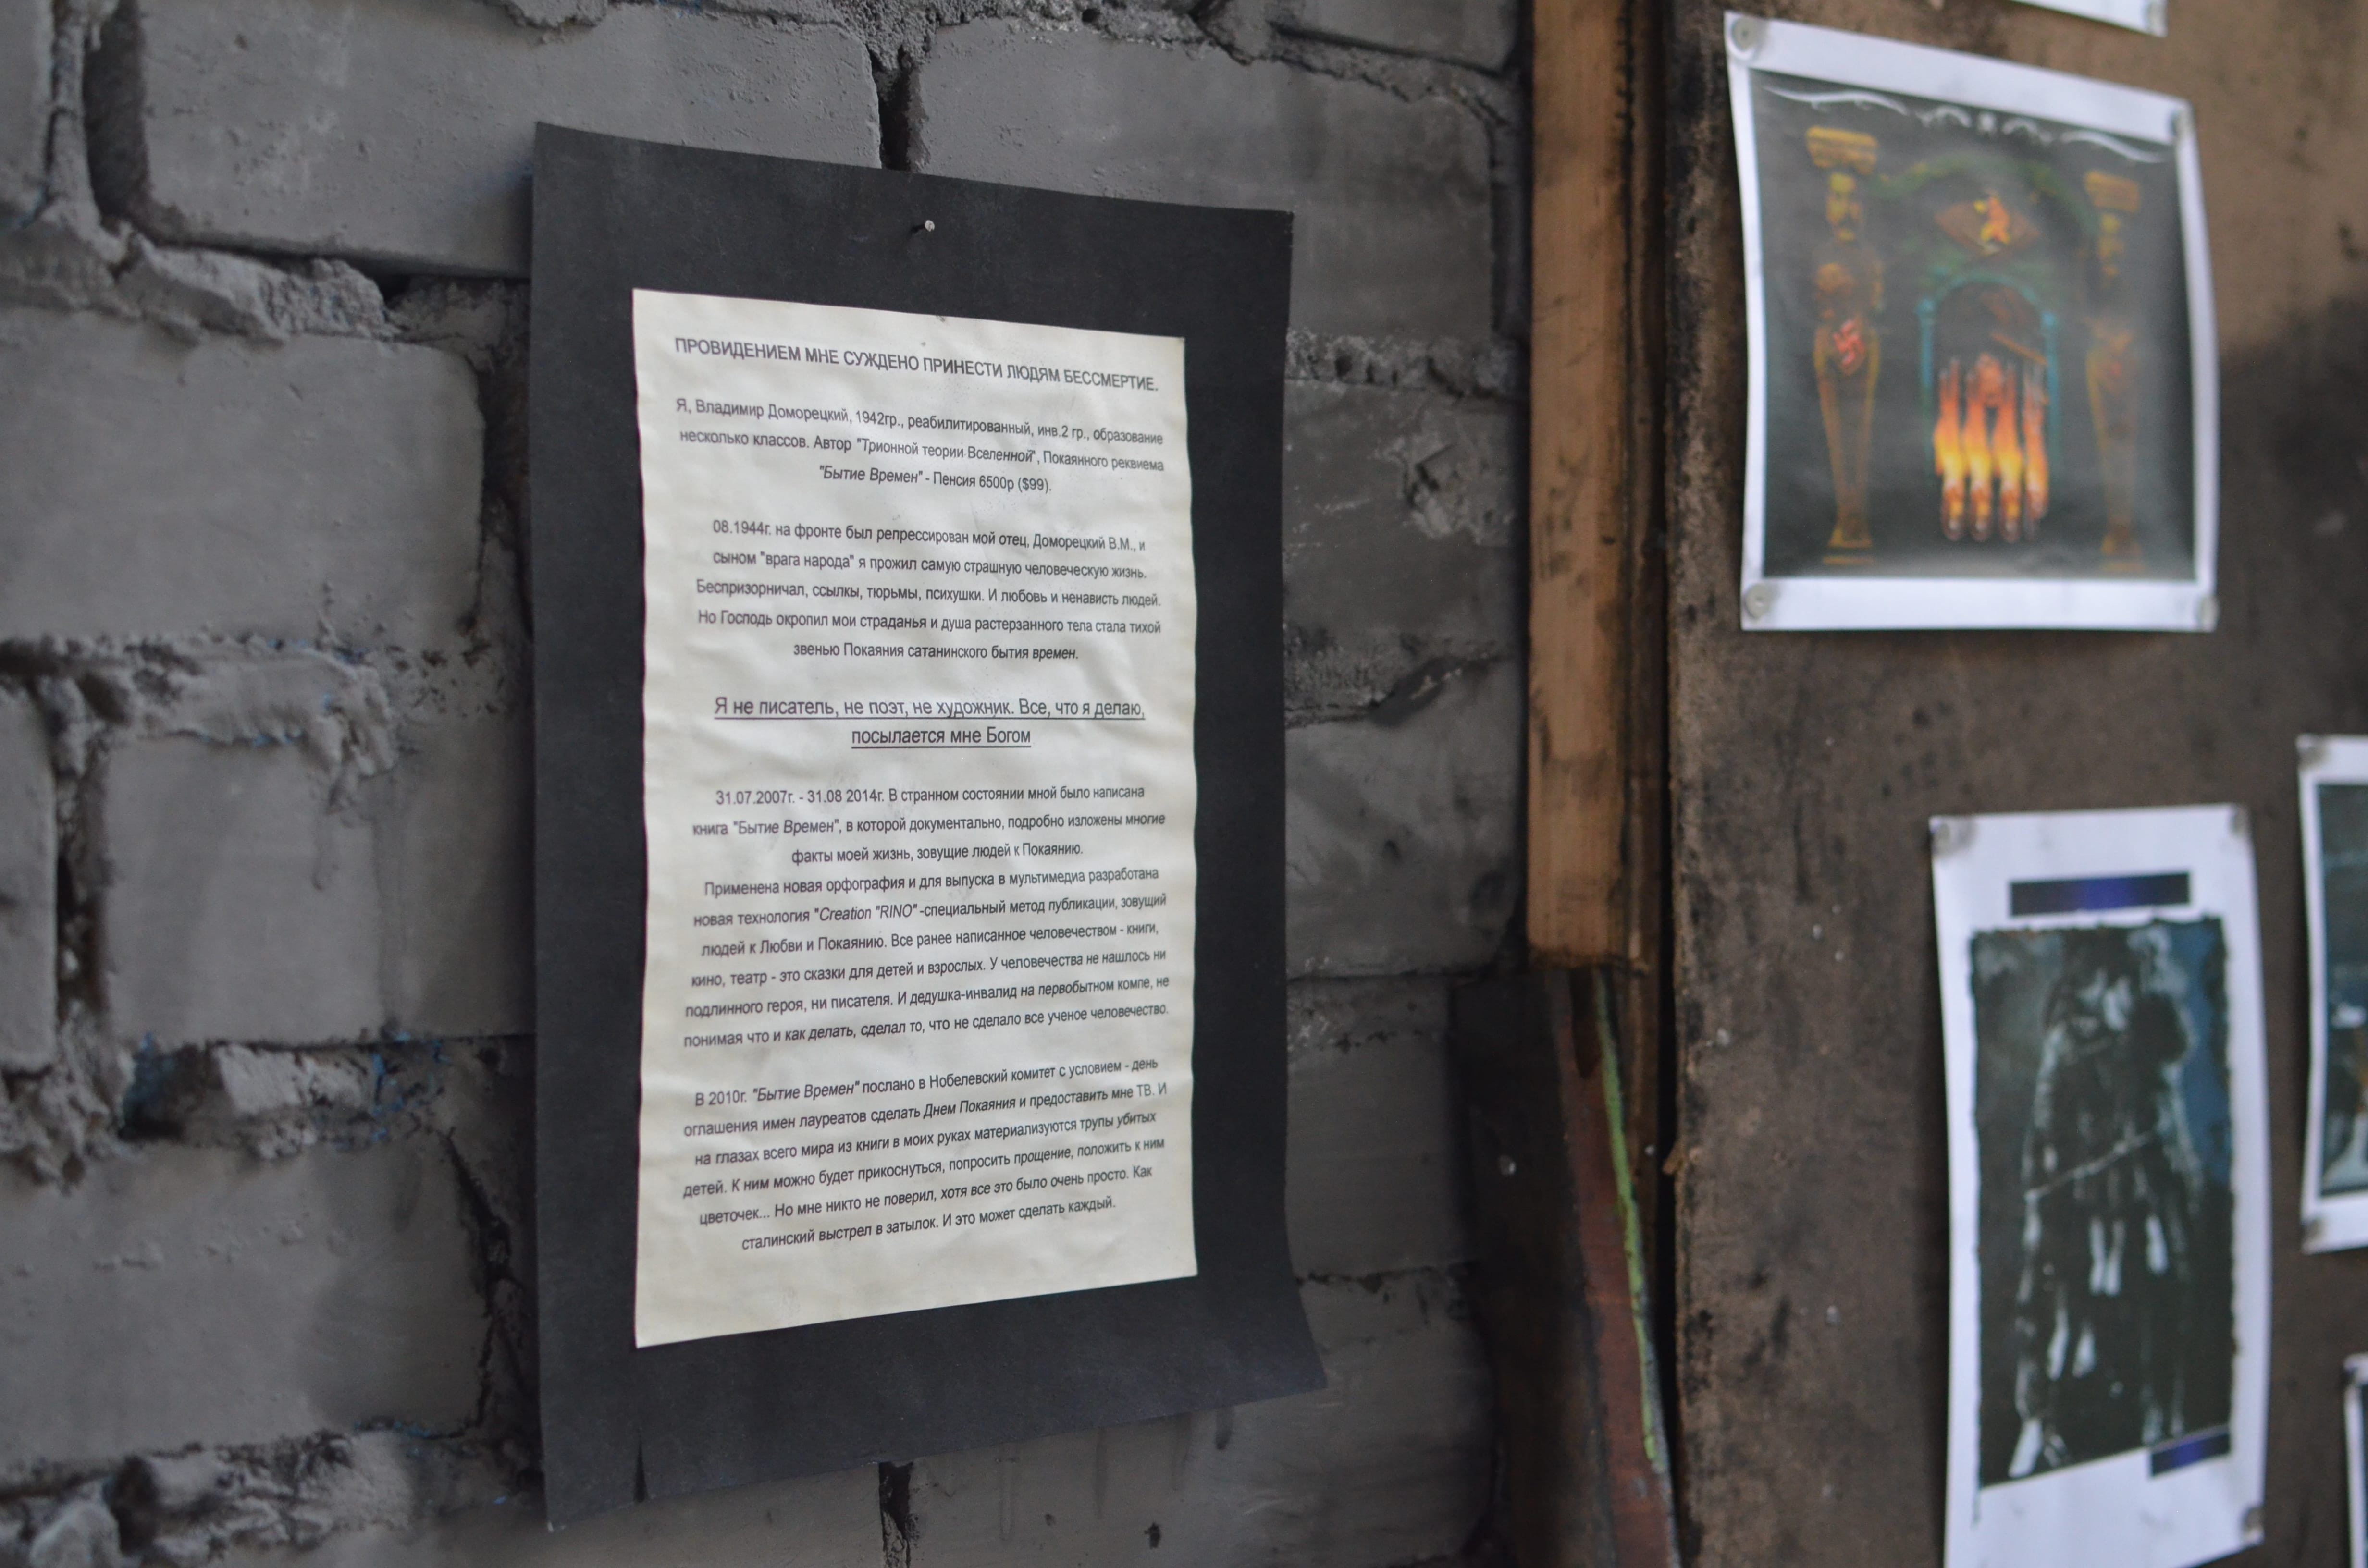 ПРОВИДЕНИЕМ МНЕ СУЖДЕНО ПРИНЕСТИ ЛЮДЯМ БЕССМЕРТИЕ.
Я, Владимир Доморецкий, 1942гр., реабилитированный, инв.2 гр., образование
несколько классов. Автор "Трионной теории Вселенной", Покаянного реквиема
"Бытие Времен" - Пенсия 6500р ($99).
08.1944г. на фронте был репрессирован мой отец, Доморецкий В.М., и
сыном "врага народа" я прожил самую страшную человеческую жизнь.
Беспризорничал, ссылкы, тюрьмы, психушки. И любовь и ненависть людей.
Но Господь окропил мои страданья и душа растерзанного тела стала тихой
звенью Покаяния сатанинского бытия времен.
Я не писатель, не поэт, не художник. Все, что я делаю,
посылается мне Богом
31.07.2007г. - 31.08 2014г. В странном состоянии мной было написана
книга "Бытие Времен", в которой документально, подробно изложены многие
факты моей жизнь, зовущие людей к Покаянию.
Применена новая орфография и для выпуска в мультимедиа разработана
новая технология "Creation "RINO" -специальный метод публикации, зовущий
людей к Любви и Покаянию. Все ранее написанное человечеством - книги,
кино, театр - это сказки для детей и взрослых. У человечества не нашлось ни
подлинного героя, ни писателя. И дедушка-инвалид на первобытном компе, не
понимая что и как делать, сделал то, что не сделало все ученое человечество.
В 2010г. "Бытие Времен" послано в Нобелевский комитет с условием - день
оглашения имен лауреатов сделать Днем Покаяния и предоставить мне ТВ. И
на глазах всего мира из книги в моих руках материализуются трупы убитых
детей. К ним можно будет прикоснуться, попросить прощение, положить к ним
цветочек... Но мне никто не поверил, хотя все это было очень просто. Как
сталинский выстрел в затылок. И это может сделать каждый.